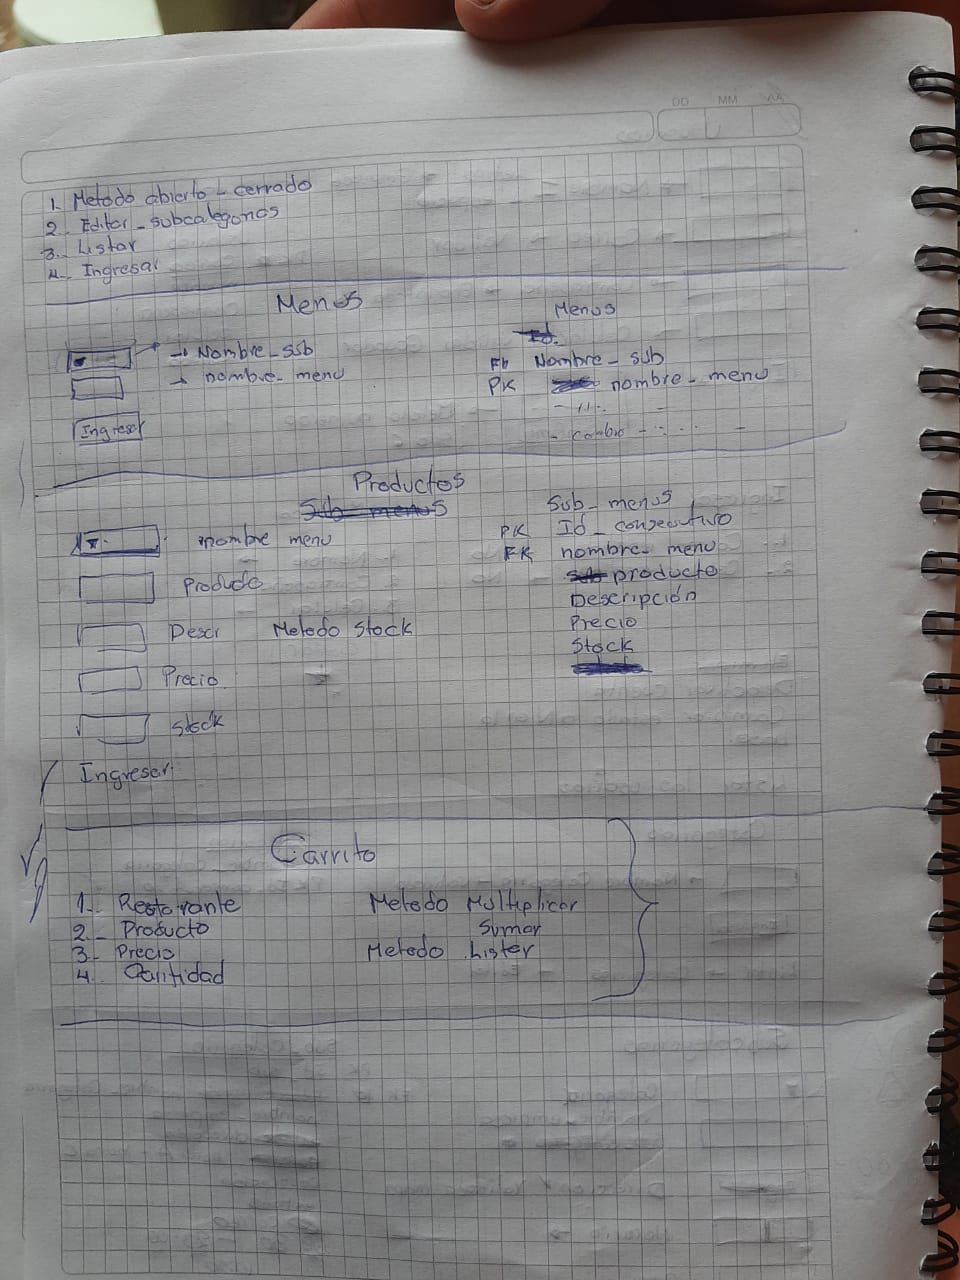 DD MM AA
1. Metodo abierto - cerrado
2. Editar - subcategorias
3. Listar
4. Ingresar
Menus
→ Nombre_sub
→ nombre_menu
Ingresar
Menus
Id.
FK Nombre_sub
PK nombre_menu
Productos
Sub menus
nombre menu
Producto
Descr
Metodo Stock
Precio
Stock
Ingresar
Sub_menus
PK Id_consecutivo
FK nombre_menu
producto
Descripción
Precio
Stock
Carrito
1. Restorante
2. Producto
3. Precio
4. Cantidad
Metodo Multiplicar
Sumar
Metodo Listar